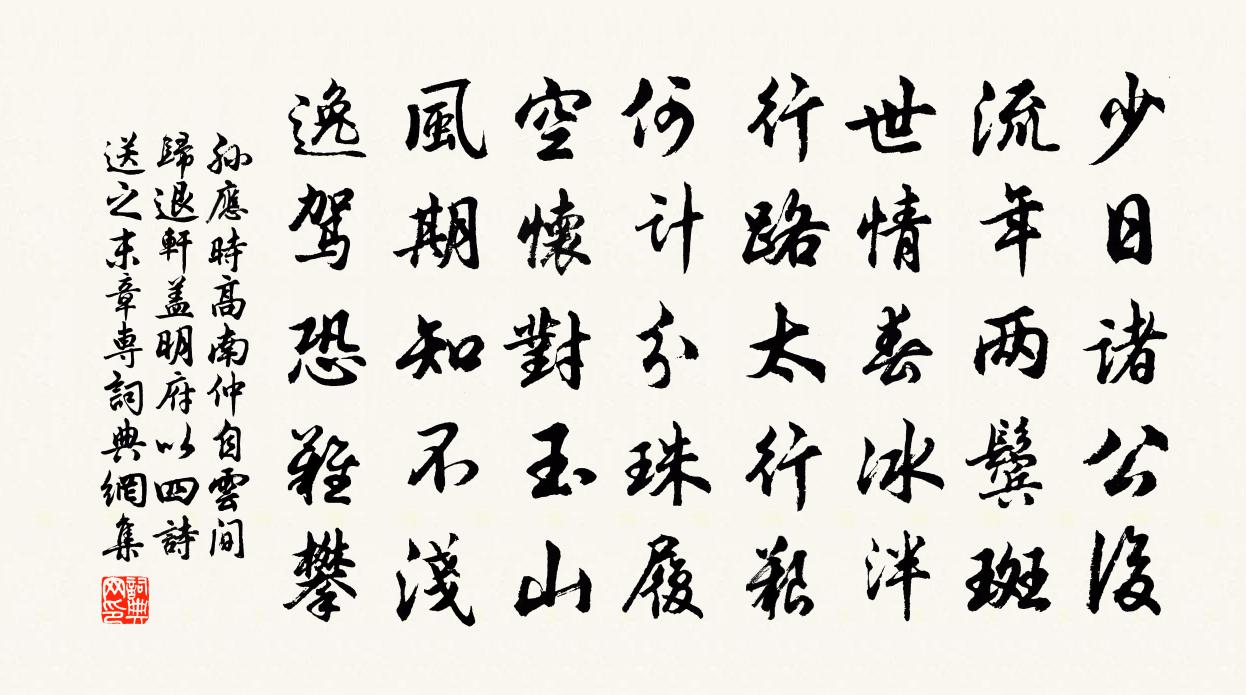 少日諸公後
流年兩鬢斑
世情春冰泮
行路太行艱
何計分珠履
空懷對玉山
風期知不淺
逸駕恐難攀
孫應時高南仲自雲间
歸退軒盖明府以四詩
送之末章專詞典網集
詞典網印